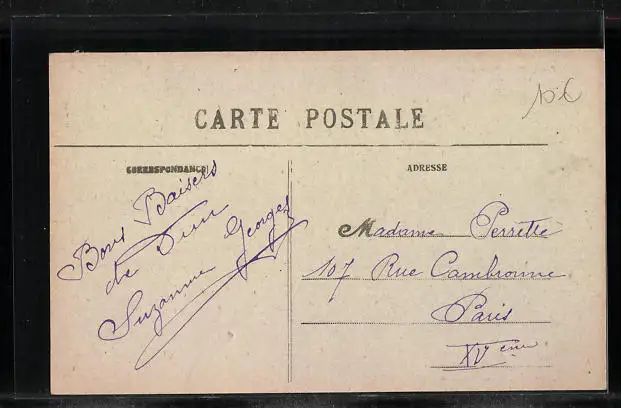 15€
CARTE POSTALE
CORRESPONDANCE
Bons Baisers
de
Suzanne Georges
ADRESSE
Madame Perrette
107 Rue Cambronne
Paris
XVeme